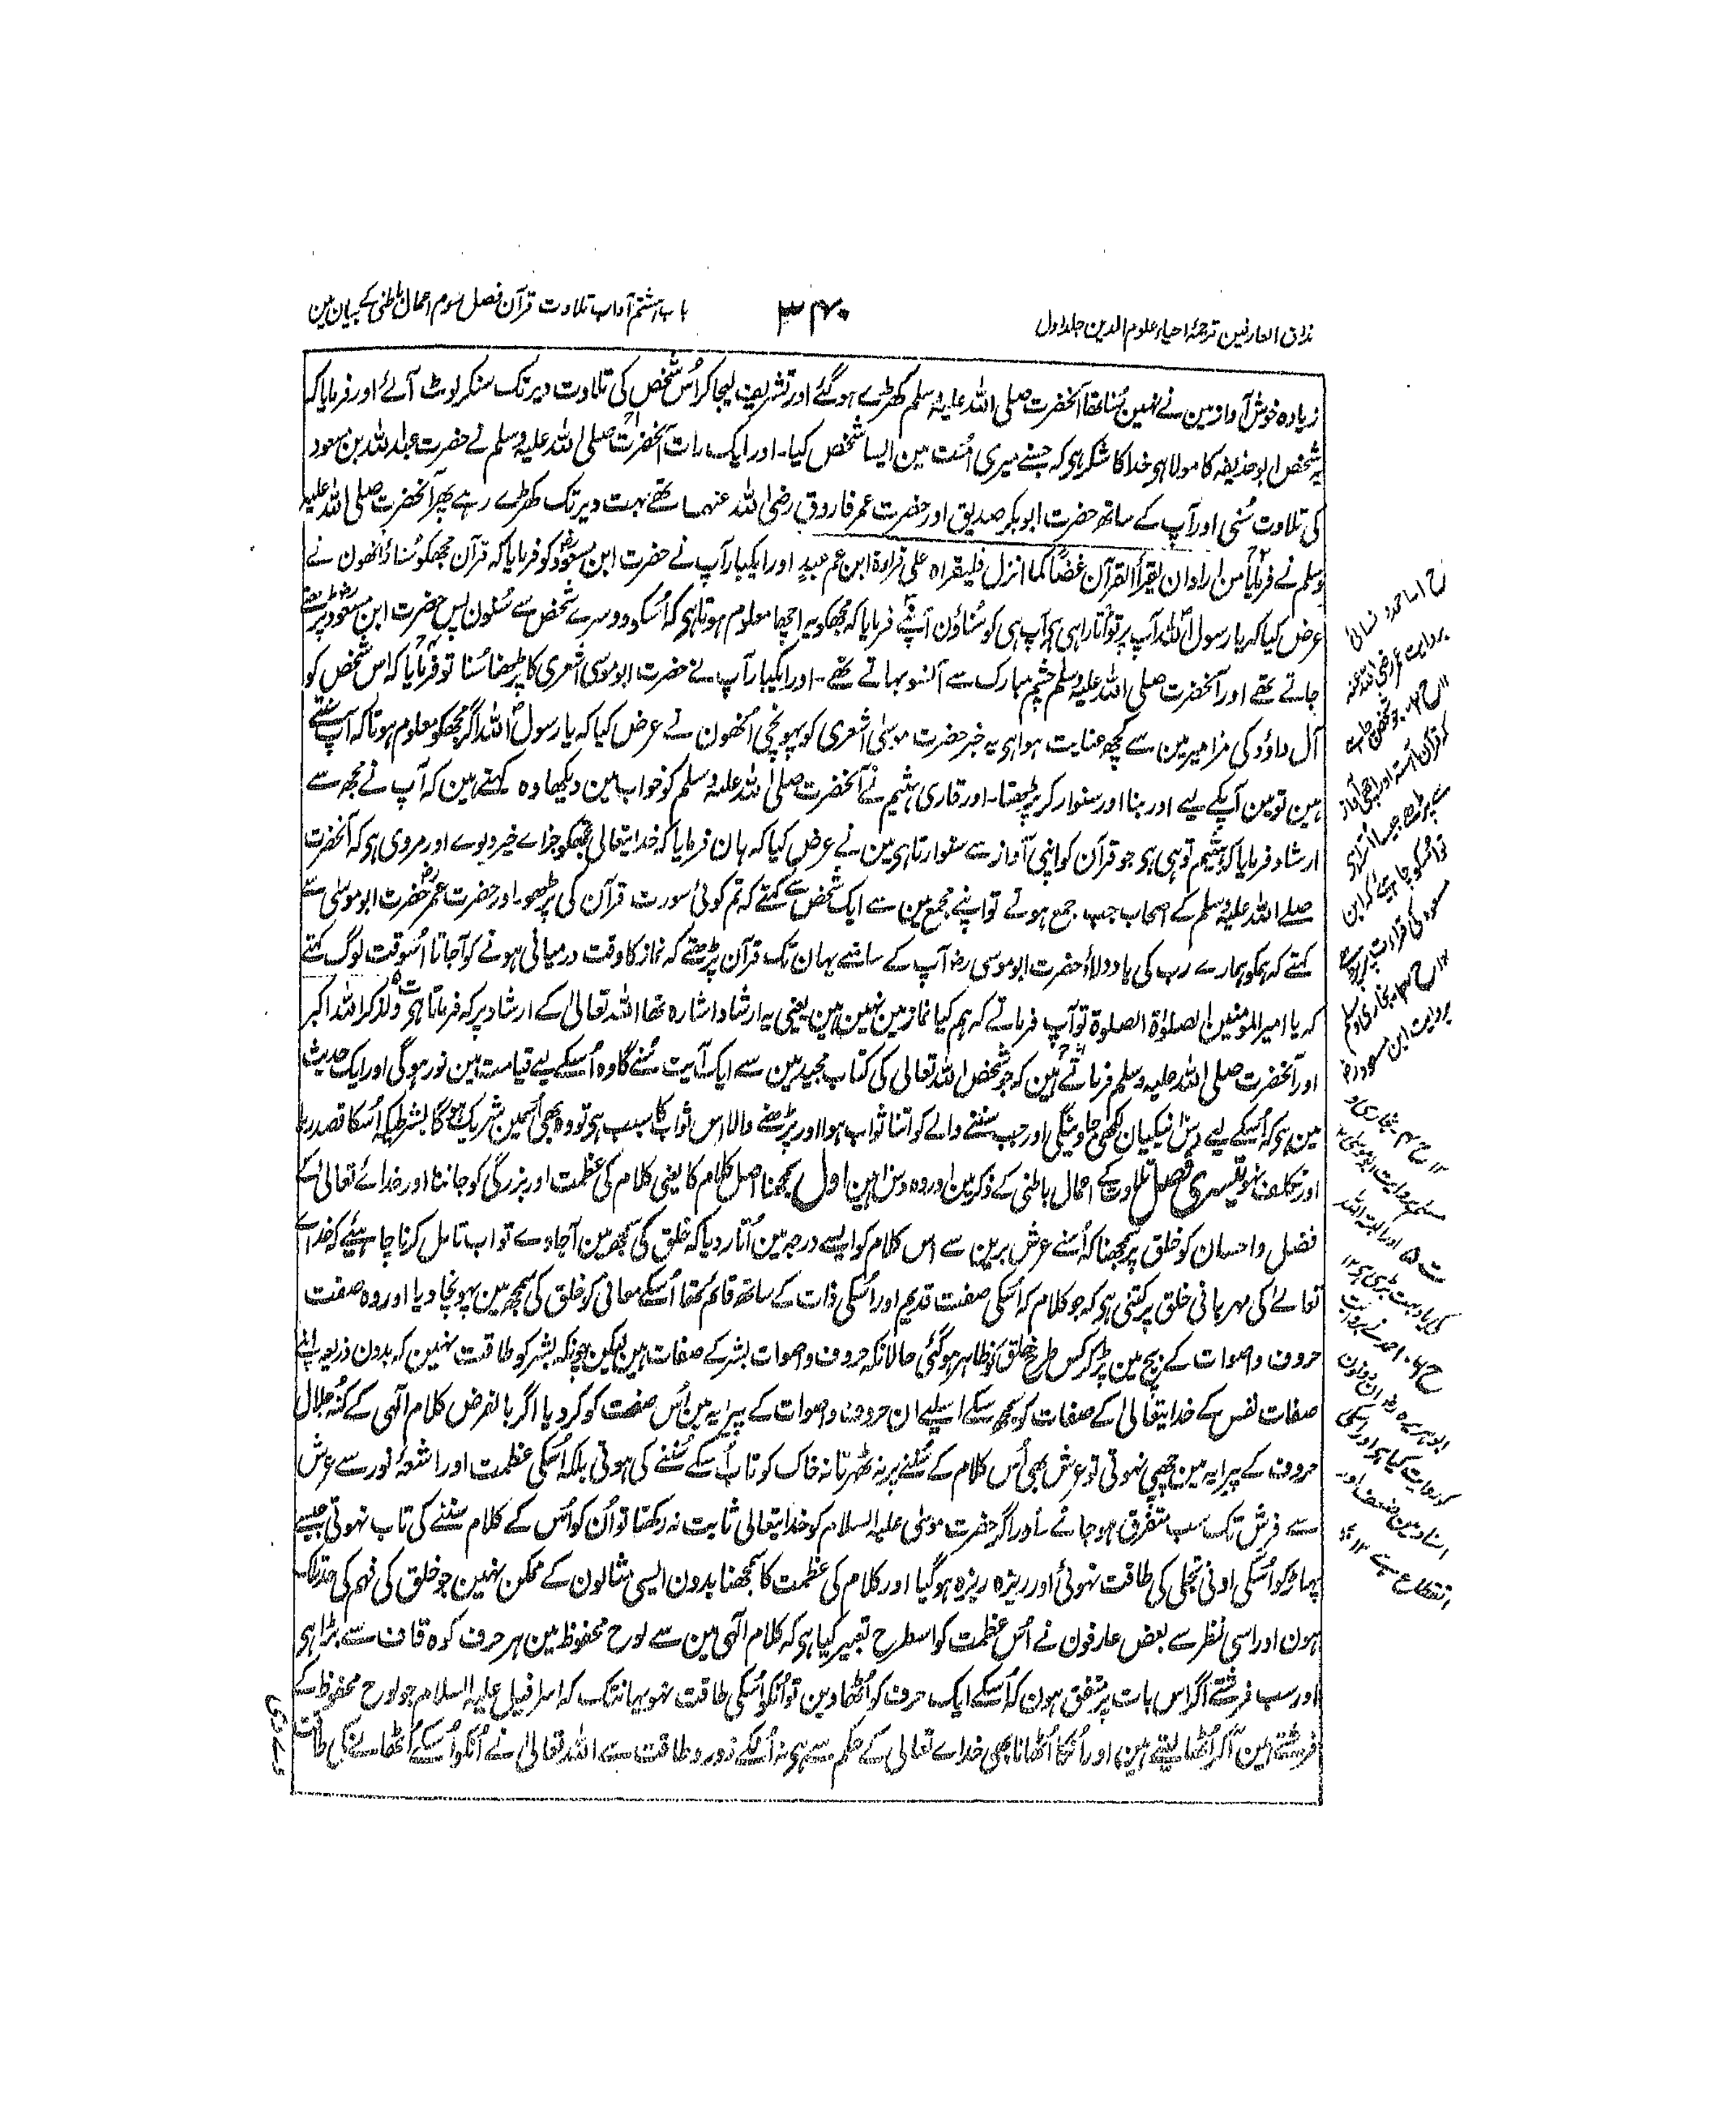 مذاق العارفین ترجمۂ احیاء علوم الدین جلد اول
۳۴۰
باب ہشتم آداب تلاوت قرآن فصل سوم اعمال باطنی کے بیان مین
زیادہ خوش آواز مین نے نہین سُنا تھا آنحضرت صلی اللہ علیہ وسلم کھڑے ہوگئے اور تشریف لیجا کر اُس شخص کی تلاوت دیر تک سنکر لوٹ آئے اور فرمایا کہ
یہ شخص ابو حذیفہ کا مولا ہی خدا کا شکر ہی کہ جسنے میری اُمت مین ایسا شخص کیا۔ اور ایک رات آنحضرت صلی اللہ علیہ وسلم نے حضرت عبداللہ بن مسعود
کی تلاوت سُنی اور آپ کے ساتھ حضرت ابوبکر صدیق اور حضرت عمر فاروق رضی اللہ عنہما تھے بہت دیر تک کھڑے رہے پھر آنحضرت صلی اللہ علیہ
وسلم نے فرمایا من اراد ان یقرأ القرآن غضًّا کما انزل فلیقراہ علی قراءۃ ابن ام عبد اور ایکبار آپ نے حضرت ابن مسعودؓ کو فرمایا کہ قرآن مجھکو سُناؤ انھون نے
عرض کیا کہ یا رسول اللہ آپ پر تو اُتارا ہی ہی آپ ہی کو سُناؤن آپ نے فرمایا کہ مجھکو یہ اچھا معلوم ہوتا ہی کہ اُسکو دوسرے شخص سے سُنون پس حضرت ابن مسعودؓ پڑھتے
جاتے تھے اور آنحضرت صلی اللہ علیہ وسلم چشم مبارک سے آنسو بہاتے تھے۔ اور ایکبار آپ نے حضرت ابو موسی اشعری کا پڑھنا سُنا تو فرمایا کہ اس شخص کو
آل داؤد کی مزامیر مین سے کچھ عنایت ہوا ہی یہ خبر حضرت موسیٰ اشعری کو پہونچی اُنھون نے عرض کیا کہ یا رسول اللہ اگر مجھکو معلوم ہوتا کہ آپ سنتے
ہین تو مین آپکے لیے اور بنا اور سنوار کر پڑھتا۔ اور قاری ہشیم نے آنحضرت صلی اللہ علیہ وسلم کو خواب مین دیکھا وہ کہتے ہین کہ آپ نے مجھ سے
ارشاد فرمایا کہ ہشیم تو ہی ہی جو قرآن کو اپنی آواز سے سنوارتا ہی مین نے عرض کیا کہ ہان فرمایا کہ خدا تعالی تجھکو جزاے خیر دیوے اور مروی ہی کہ آنحضرت
صلے اللہ علیہ وسلم کے اصحاب جب جمع ہوتے تو اپنے مجمع مین سے ایک شخص سے کہتے کہ تم کوئی سورت قرآن کی پڑھو۔ اور حضرت عمرؓ حضرت ابو موسیٰ سے
کہتے کہ ہمکو ہمارے رب کی یاد دلاؤ حضرت ابو موسی رضہ آپ کے سامنے یہان تک قرآن پڑھتے کہ نماز کا وقت درمیانی ہونے کو آجاتا اُسوقت لوگ کہتے
کہ یا امیر المومنین الصلوٰۃ الصلوۃ تو آپ فرماتے کہ ہم کیا نماز مین نہین ہین یعنی یہ ارشاد اشارہ تھا اللہ تعالیٰ کے ارشاد پر کہ فرماتا ہی ولذکر اللہ اکبر
اور آنحضرت صلی اللہ علیہ وسلم فرماتے ہین کہ جو شخص اللہ تعالی کی کتاب مجید مین سے ایک آیت سُنے گا وہ اُسکے لیے قیامت مین نور ہوگی اور ایک حدیث
مین ہی کہ اُسکے لیے دس نیکیان لکھی جاوینگی اور جب سننے والے کو اتنا ثواب ہوا اور پڑھنے والا اس ثواب کا سبب ہی تو وہ بھی اُسمین شریک ہوگا بشرطیکہ اُسکا قصد ریا
اور تکلف نہو تیسری فصل تلاوت کے اعمال باطنی کے ذکر مین اور وہ دس ہین اول سمجھنا اصل کلام کا یعنی کلام کی عظمت اور بزرگی کو جاننا اور خداے تعالیٰ کے
فضل و احسان کو خلق پر سمجھنا کہ اُسنے عرش برین سے اس کلام کو ایسے درجہ مین اُتار دیا کہ خلق کی سمجھ مین آجاوے تو اب تامل کرنا چاہیئے کہ خداے
تعالےٰ کی مہربانی خلق پر کتنی ہی کہ جو کلام کہ اُسکی صفت قدیم اور اُسکی ذات کے ساتھ قائم تھا اُسکے معانی کو خلق کی سمجھ مین پہونچا دیا اور وہ صفت
حروف و اصوات کے پیچ مین پڑ کر کس طرح خلق کو ظاہر ہوگئی حالانکہ حروف و اصوات بشر کے صفات ہین لیکن چونکہ بشر کو طاقت نہین کہ بدون ذریعہ اپنے
صفات نفس کے خدا تعالیٰ کے صفات کو سمجھ سکے اسلیے ان حروف و اصوات کے پیرایہ مین اُس صفت کو کر دیا اگر بالفرض کلام الٰہی کے کُنہ جلال
حروف کے پیرایہ مین چھپی نہوتی تو عرش بھی اُس کلام کے سُننے پر نہ ٹھہرتا نہ خاک کو تاب اُسکے سُننے کی ہوتی بلکہ اُسکی عظمت اور اشعۂ نور سے عرش
سے فرش تک سب متفرق ہو جاتے۔ اور اگر حضرت موسیٰ علیہ السلام کو خدا یتعالی ثابت نہ رکھتا تو اُن کو اُس کے کلام سننے کی تاب نہوتی جیسے
پہاڑ کو اُسکی ادنی تجلی کی طاقت نہوئی اور ریزہ ریزہ ہوگیا اور کلام کی عظمت کا سمجھنا بدون ایسی مثالون کے ممکن نہین جو خلق کی فہم کی حد تک
ہون اور اسی نظر سے بعض عارفون نے اُس عظمت کو اسطرح تعبیر کیا ہی کہ کلام آلٰہی مین سے لوح محفوظ مین ہر حرف کوہ قاف سے بڑا ہی
اور سب فرشتے اگر اس بات پر متفق ہون کہ اُسکے ایک حرف کو اُٹھا وین تو اُنکو اُسکی طاقت نہو یہانتک کہ اسرافیل علیہ السلام جو لوح محفوظ کے
فرشتے ہین آکر اُٹھا لیتے ہین اور اُنکا اُٹھانا بھی خداے تعالی کے حکم سے ہی نہ اُنکے زور و طاقت سے اللہ تعالیٰ نے اُنکو اُسکے اُٹھانے کی طاقت
ح ا احمد و نسائی
بروایت عمر رضی اللہ عنہ
۱۲ ح ۲ جو شخص چاہے
کہ قرآن آہستہ اور اچھی آواز
سے پڑھے جیسا اُترا ہی
تو اُسکو چاہیئے کہ ابن
مسعود کی قراءت پر پڑھے
۱۲ ح ۳ بخاری و مسلم
بروایت ابن مسعود رضہ
۱۲ ح ۴ بخاری و
مسلم بروایت ابو موسیٰ ۱۲
ت ۵ اور البتہ اللہ
کی یاد بہت بڑی ہی ۱۲
ح ۶ احمد نے بروایت
ابو ہریرہ رضہ ان دونون
کو روایت کیا ہی اور اسکی
اسناد مین ضعف اور
انقطاع ہے ۱۲